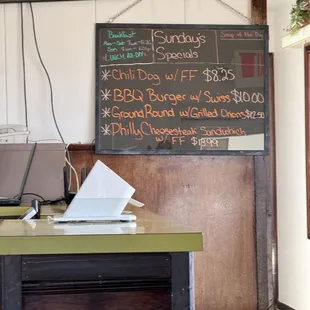 Breakfast
Sunday's
Specials
Soup of the Day
*Chili Dog w/FF $8.25
*BBQ Burger w/Swiss $10.00
*Ground Round w/Grilled Onions $12.50
*Philly Cheesesteak Sandwich
w/FF $13.99